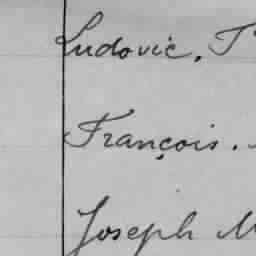 Ludovic. T
François.
Joseph M